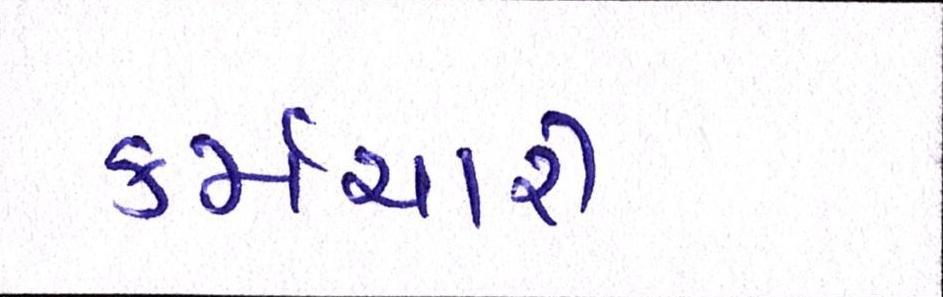 કર્મચારી